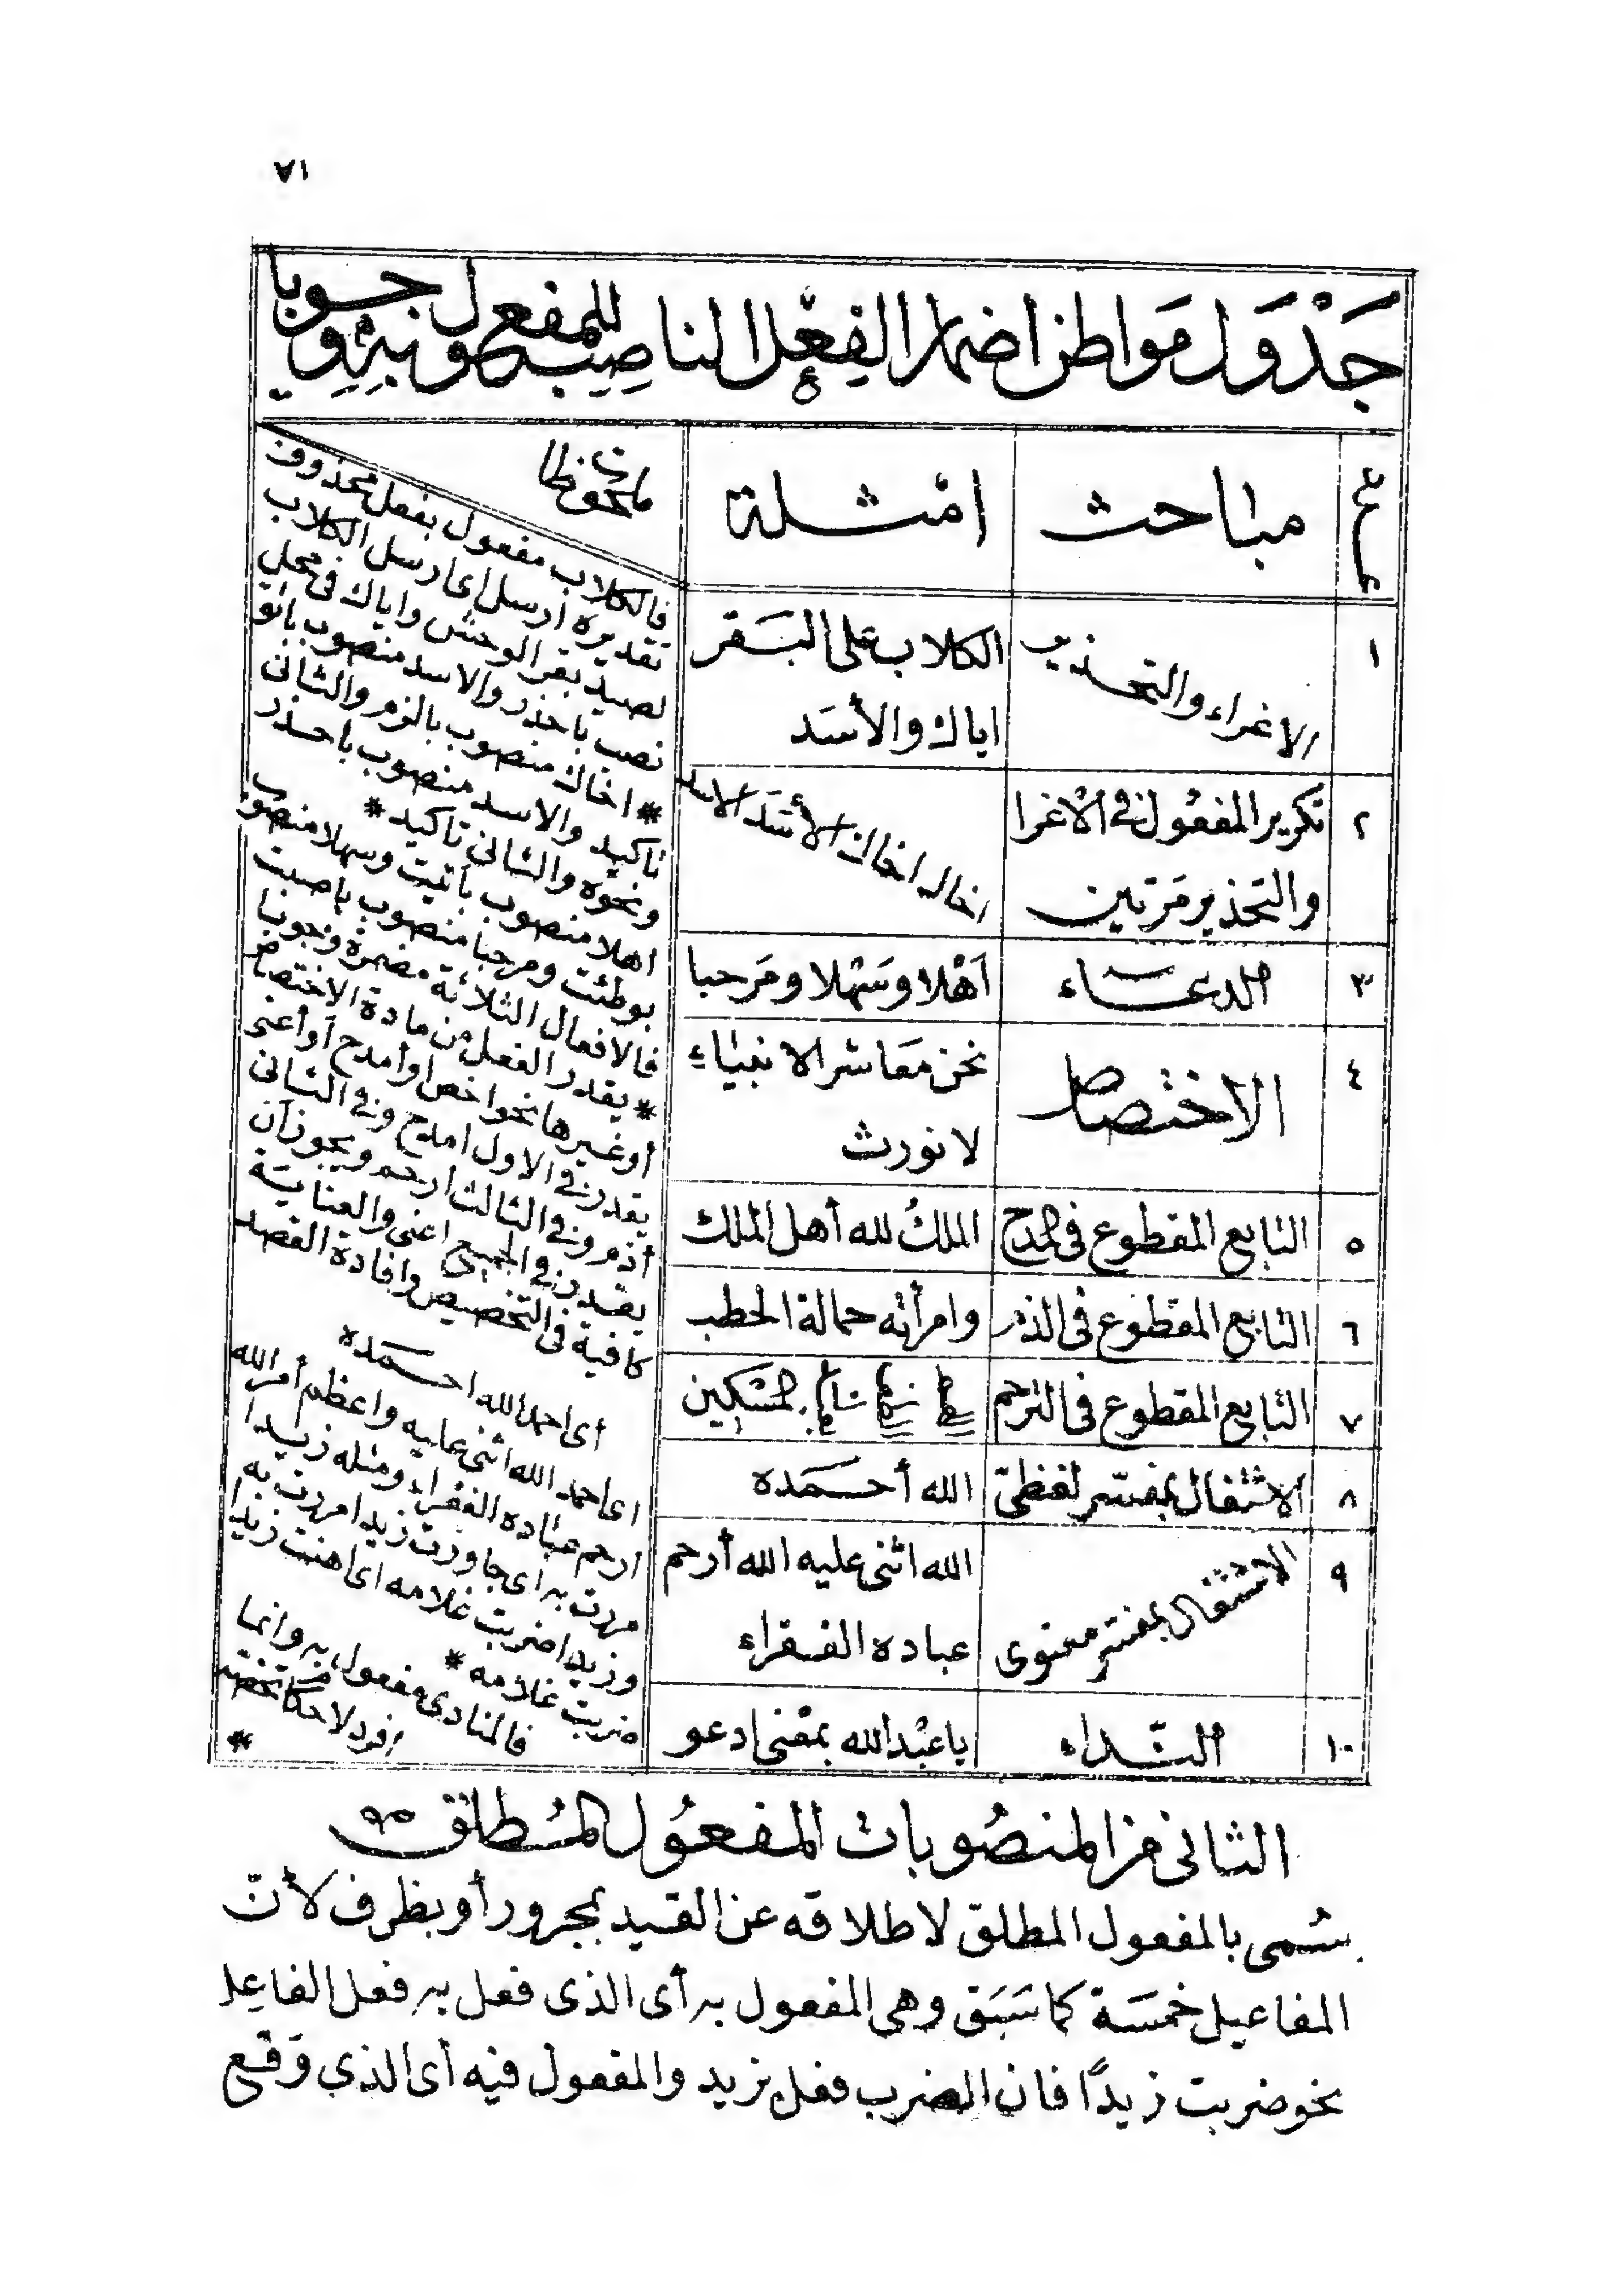 ٧١
جَدْوَل مَواطن اضمار الفِعْل الناصِب للمفعول به وجوبا
عدد
مباحث
امثلة
ملحوظات
١
الاغراء والتحذير
الكلاب على البَقر
اياك والأسَد
٢
تكرير المفعُول في الاغرا
والتحذير مَرتين
اخاك اخاك الأسَد الاسد
٣
الدعاء
اَهْلا وسَهْلا ومَرحبا
٤
الاختصاص
نحن مَعاشر الانبيَاءِ
لا نورث
٥
التابع المقطوع في المدح
الملكُ لله أهل الملك
٦
التابع المقطوع في الذم
وامرأته حمالة الحطب
٧
التابع المقطوع في الترحم
المسكين
٨
الاشتغال بمفسّر لفظىّ
الله أحمَده
٩
الاشتغال بمفسّر معنوى
الله اثنى عليه الله أرحم
عباده الفقراء
١٠
النّداء
يا عبْد الله بمعْنى ادعو
فالكلاب مفعول بفعل محذوف
تقديره ارسل اى ارسل الكلاب
لصيد بقر الوحش واياك في محل
نصب باحذر والاسد منصوب باتق
* اخاك منصوب بالزم والثانى
تاكيد والاسد منصوب باحذر
ونحوه والثانى تاكيد *
اهلا منصوب بأتيت وسهلا منصوب
بوطئت ومرحبا منصوب باصبت
فالافعال الثلاثة مضمرة وجوبا
* يقدر الفعل من مادة الاختصاص
أو غيرها نحو اخص أو أمدح أو أعنى
يقدر في الاول امدح وفي الثانى
أذم وفي الثالث ارحم ويجوز أن
يقدر في الجميع اعنى والعناية
كافية في التخصيص وافادة القصد
أى احمد الله احمده
اى احمد الله اثنى عليه واعظم أمر الله
ارحم عباده الفقراء ومثله زيدا
مررت به اى جاوزت زيدا مررت به
وزيدا ضربت غلامه اى اهنت زيدا
ضربت غلامه *
فالمنادى مفعول به وانما
افرد لاحكام تخصه
*
الثانى من المنصُوبات المفعُول المُطلق
يسُمى بالمفعول المطلق لاطلاقه عن القيد بمجرور أو بظرف لأنّ
المفاعيل خمسَة كما سَبَق وهى المفعول به أى الذى فعل به فعل الفاعِل
نحو ضربت زيدًا فان الضرب فعل بزيد والمفعول فيه أى الذي وَقع